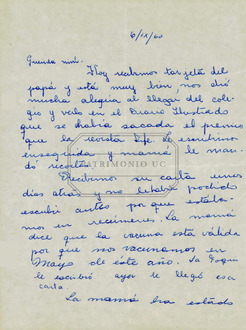 6/IX/60
Querida mimi.
Hoy recibimos tarjeta del
papá y está muy bien, nos dió
mucha alegría al llegar del cole-
gio y verlo en el Diario Ilustrado
que se había sacado el premio
que la revista Life. Le escribimos
enseguida y mamá le man-
dó recorte.
PATRIMONIO UC
Recibimos su carta unos
días atrás y no había podido
escribir antes por que estaba-
mos en recimenes. La mamá
dice que la vacuna está válida
por que nos vacunamos en
Mayo de este año. La
le escribió ayer le llegó esa
carta.
La mamá ha estado